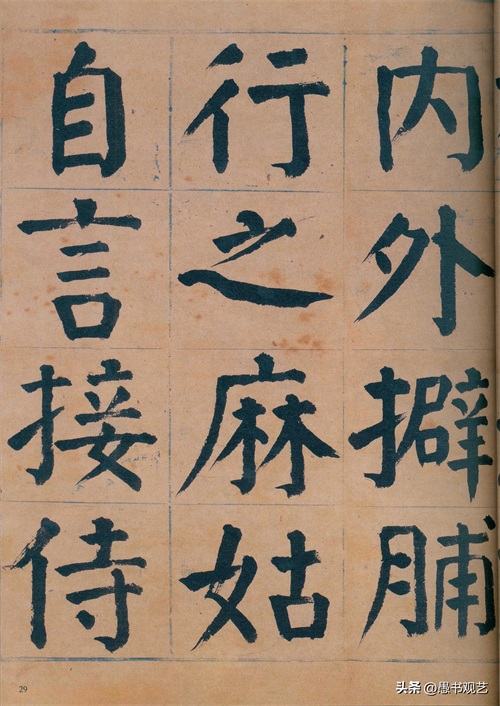 内外擗脯
行之麻姑
自言接侍
29
头条@愚书观艺